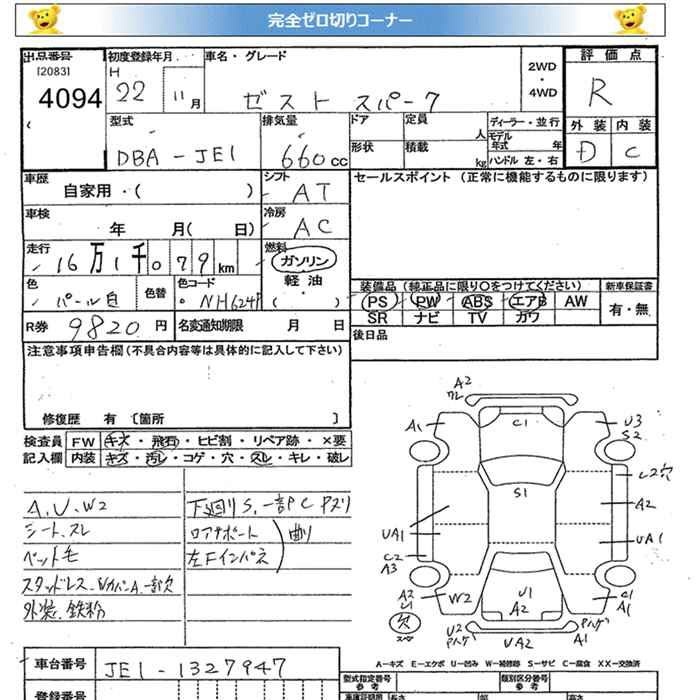 完全ゼロ切りコーナー
出品番号 初度登録年月 車名・グレード 2WD ・ 4WD 評価点
[2083] H
4094 22 11月 ゼスト スパーク R
型式 排気量 ドア 定員 人 ディーラー・並行 外装 内装
DBA-JE1 660cc 形状 積載 kg モデル年式 年 ハンドル 左・右 D C
車歴 シフト セールスポイント (正常に機能するものに限ります)
自家用・( ) AT
車検 冷房
年 月( 日) AC
走行 燃料
16万1千079km ガソリン
軽油
( )
色 色替 色コード 装備品 (純正品に限り○をつけてください) 新車保証書
パール白 NH624P PS PW ABS エアB AW 有・無
SR ナビ TV カワ
R券 9820円 名変通知期限 月 日 後日品
注意事項申告欄(不具合内容等は具体的に記入して下さい)
修復歴 有 [箇所 ]
検査員 FW キズ・飛石・ヒビ割・リペア跡・×要
記入欄 内装 キズ・汚レ・コゲ・穴・スレ・キレ・破レ
A.U.W2
シート.スレ
ペット毛
スタッドレス.Wカバー A.一部欠
外装.鉄粉
下廻りS.一部P C ヌリ
ロアサポート
左Fインパネ
曲り
A2
クレ
A1 C1 U3
S2
C2穴
S1 A2
UA1 UA1
C2
A3
A2
U1 W2 U1
A2 C1
A1
欠
スペヤ
U2
Pハゲ UA2 Pハゲ
A1
A―キズ E―エクボ U―凹み W―補修跡 S―サビ C―腐食 XX―交換済
車台番号 JE1-1327947 型式指定番号 参考 類別区分番号 参考
登録番号 長さ 幅 高さ